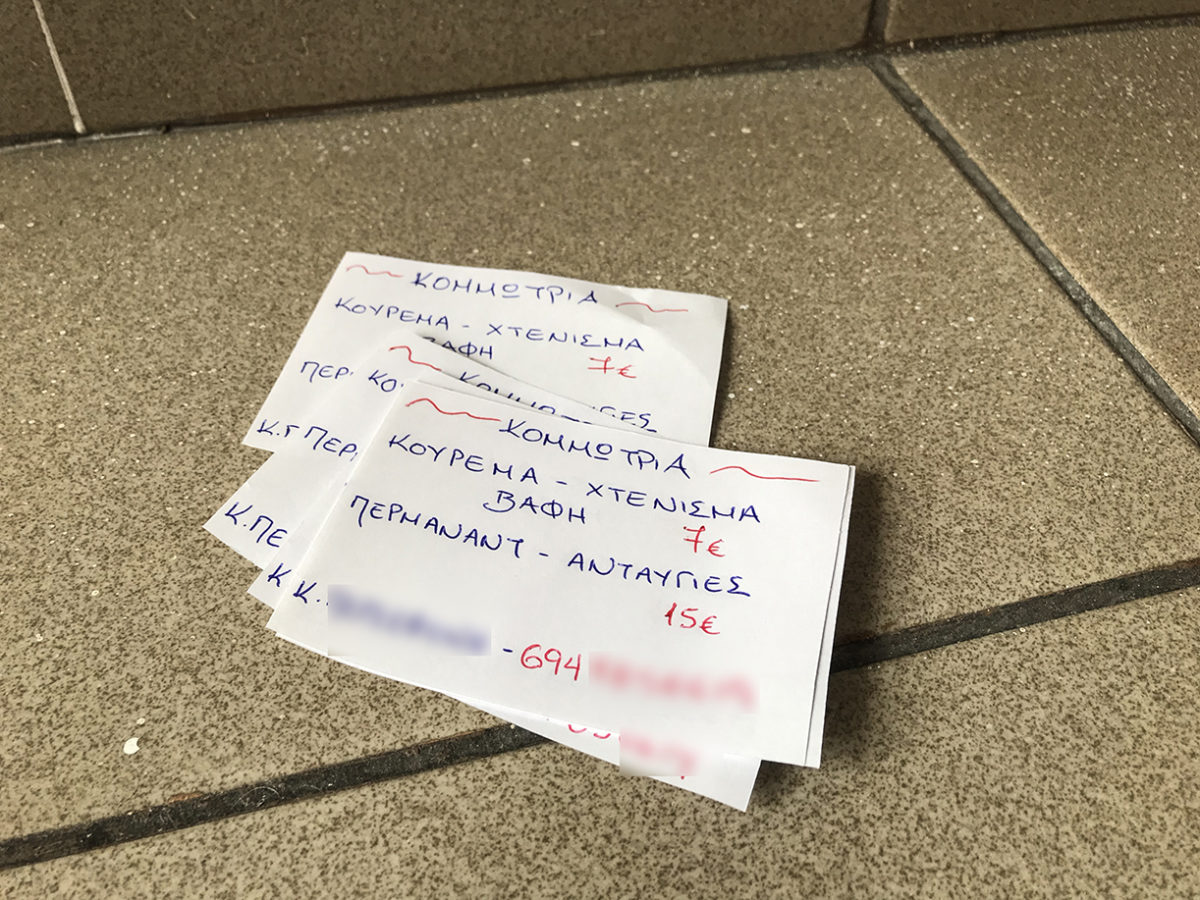 ΚΟΜΜΩΤΡΙΑ
ΚΟΥΡΕΜΑ - ΧΤΕΝΙΣΜΑ
ΒΑΦΗ 7€
ΠΕΡ
Κ.Γ
ΚΟ
ΠΕΡ
Κ.ΠΕ
Κ
ΚΟΜΜΩΤΡΙΑ
ΚΟΥΡΕΜΑ - ΧΤΕΝΙΣΜΑ
ΒΑΦΗ 7€
ΠΕΡΜΑΝΑΝΤ - ΑΝΤΑΥΓΙΕΣ
15€
Κ. - 694